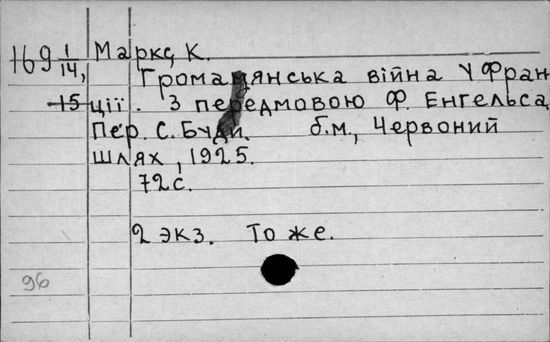 169 1/14, Маркс, К.
Громадянська війна У Фран
15 ції. З передмовою Ф. Енгельса,
Пер. С. Буди. б.м., Червоний
шлях, 1925.
72 с.
2 экз. То же.
96